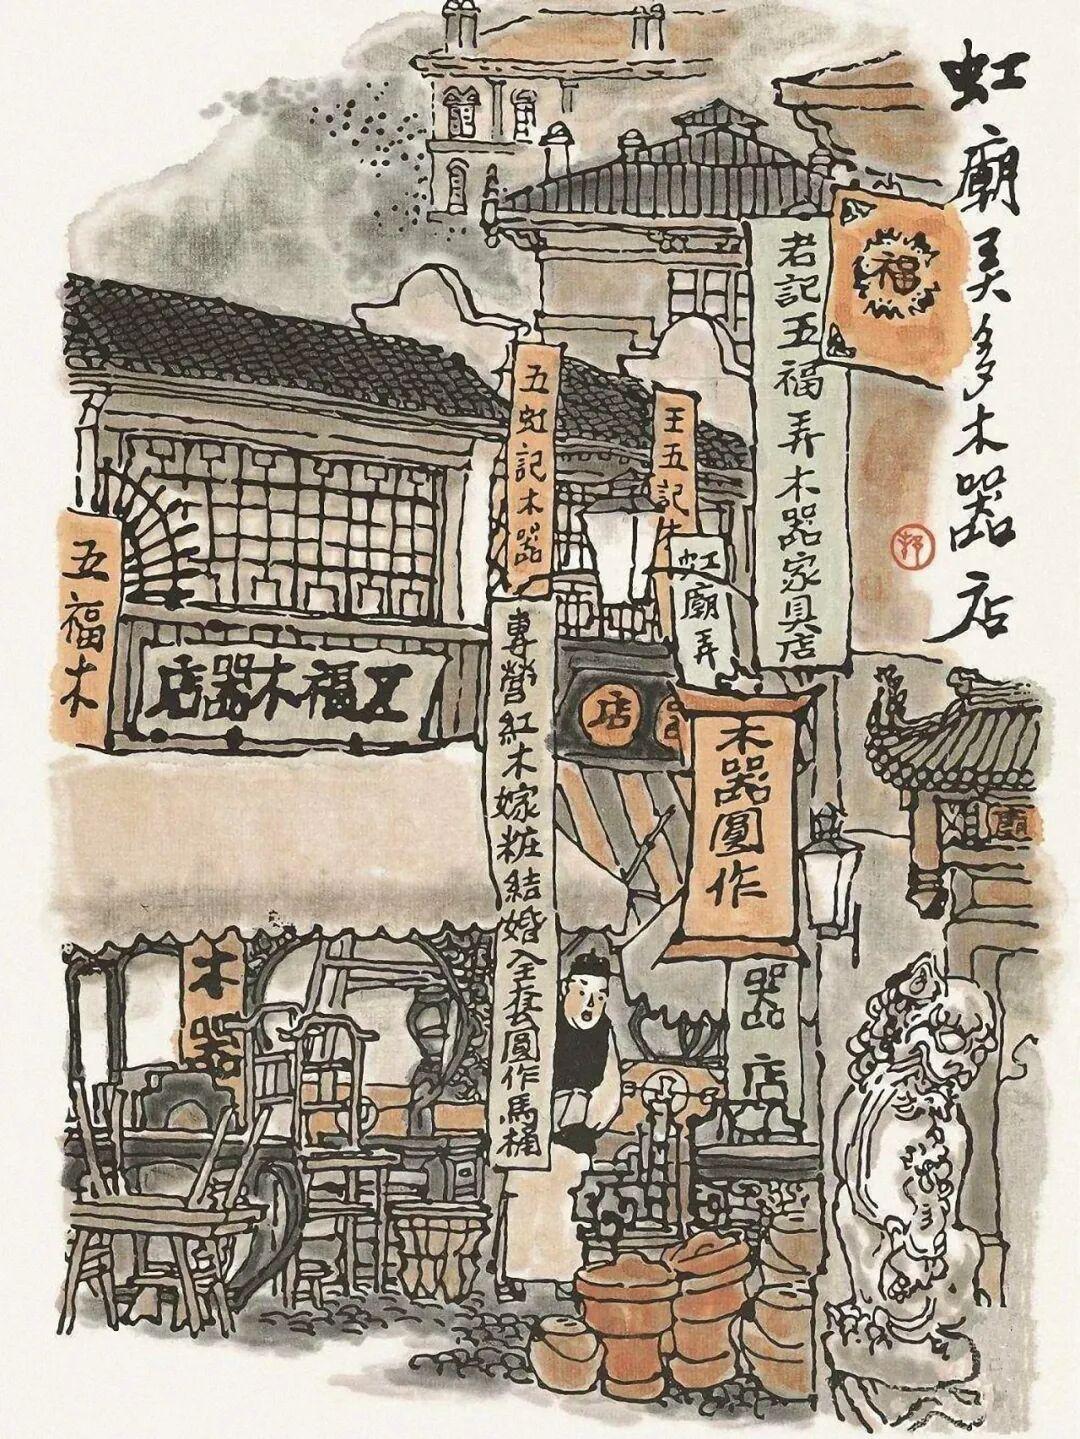 虹廟弄多木器店
福
老記五福弄木器家具店
王五記木
五虹記木器
虹廟弄
五福木
五福木器店
專營紅木嫁粧結婚全套圓作馬桶
店
木器圓作
木器
器店